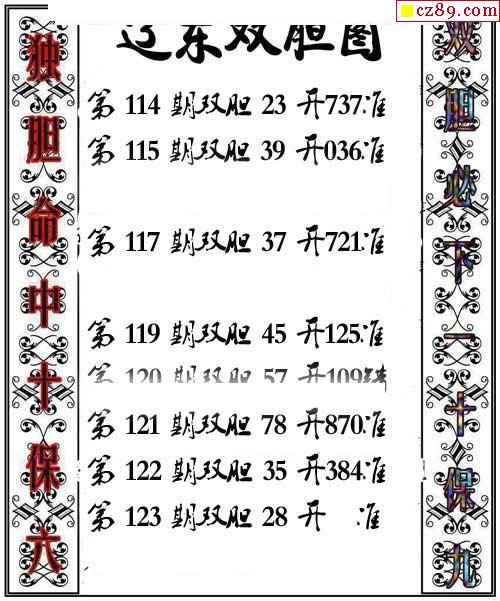 cz89.com
辽东双胆图
独胆命中十保六
第 114 期双胆 23 开737准
第 115 期双胆 39 开036准
第 117 期双胆 37 开721准
第 119 期双胆 45 开125准
第 120 期双胆 57 开109
第 121 期双胆 78 开870准
第 122 期双胆 35 开384准
第 123 期双胆 28 开 准
双胆必下一十保九